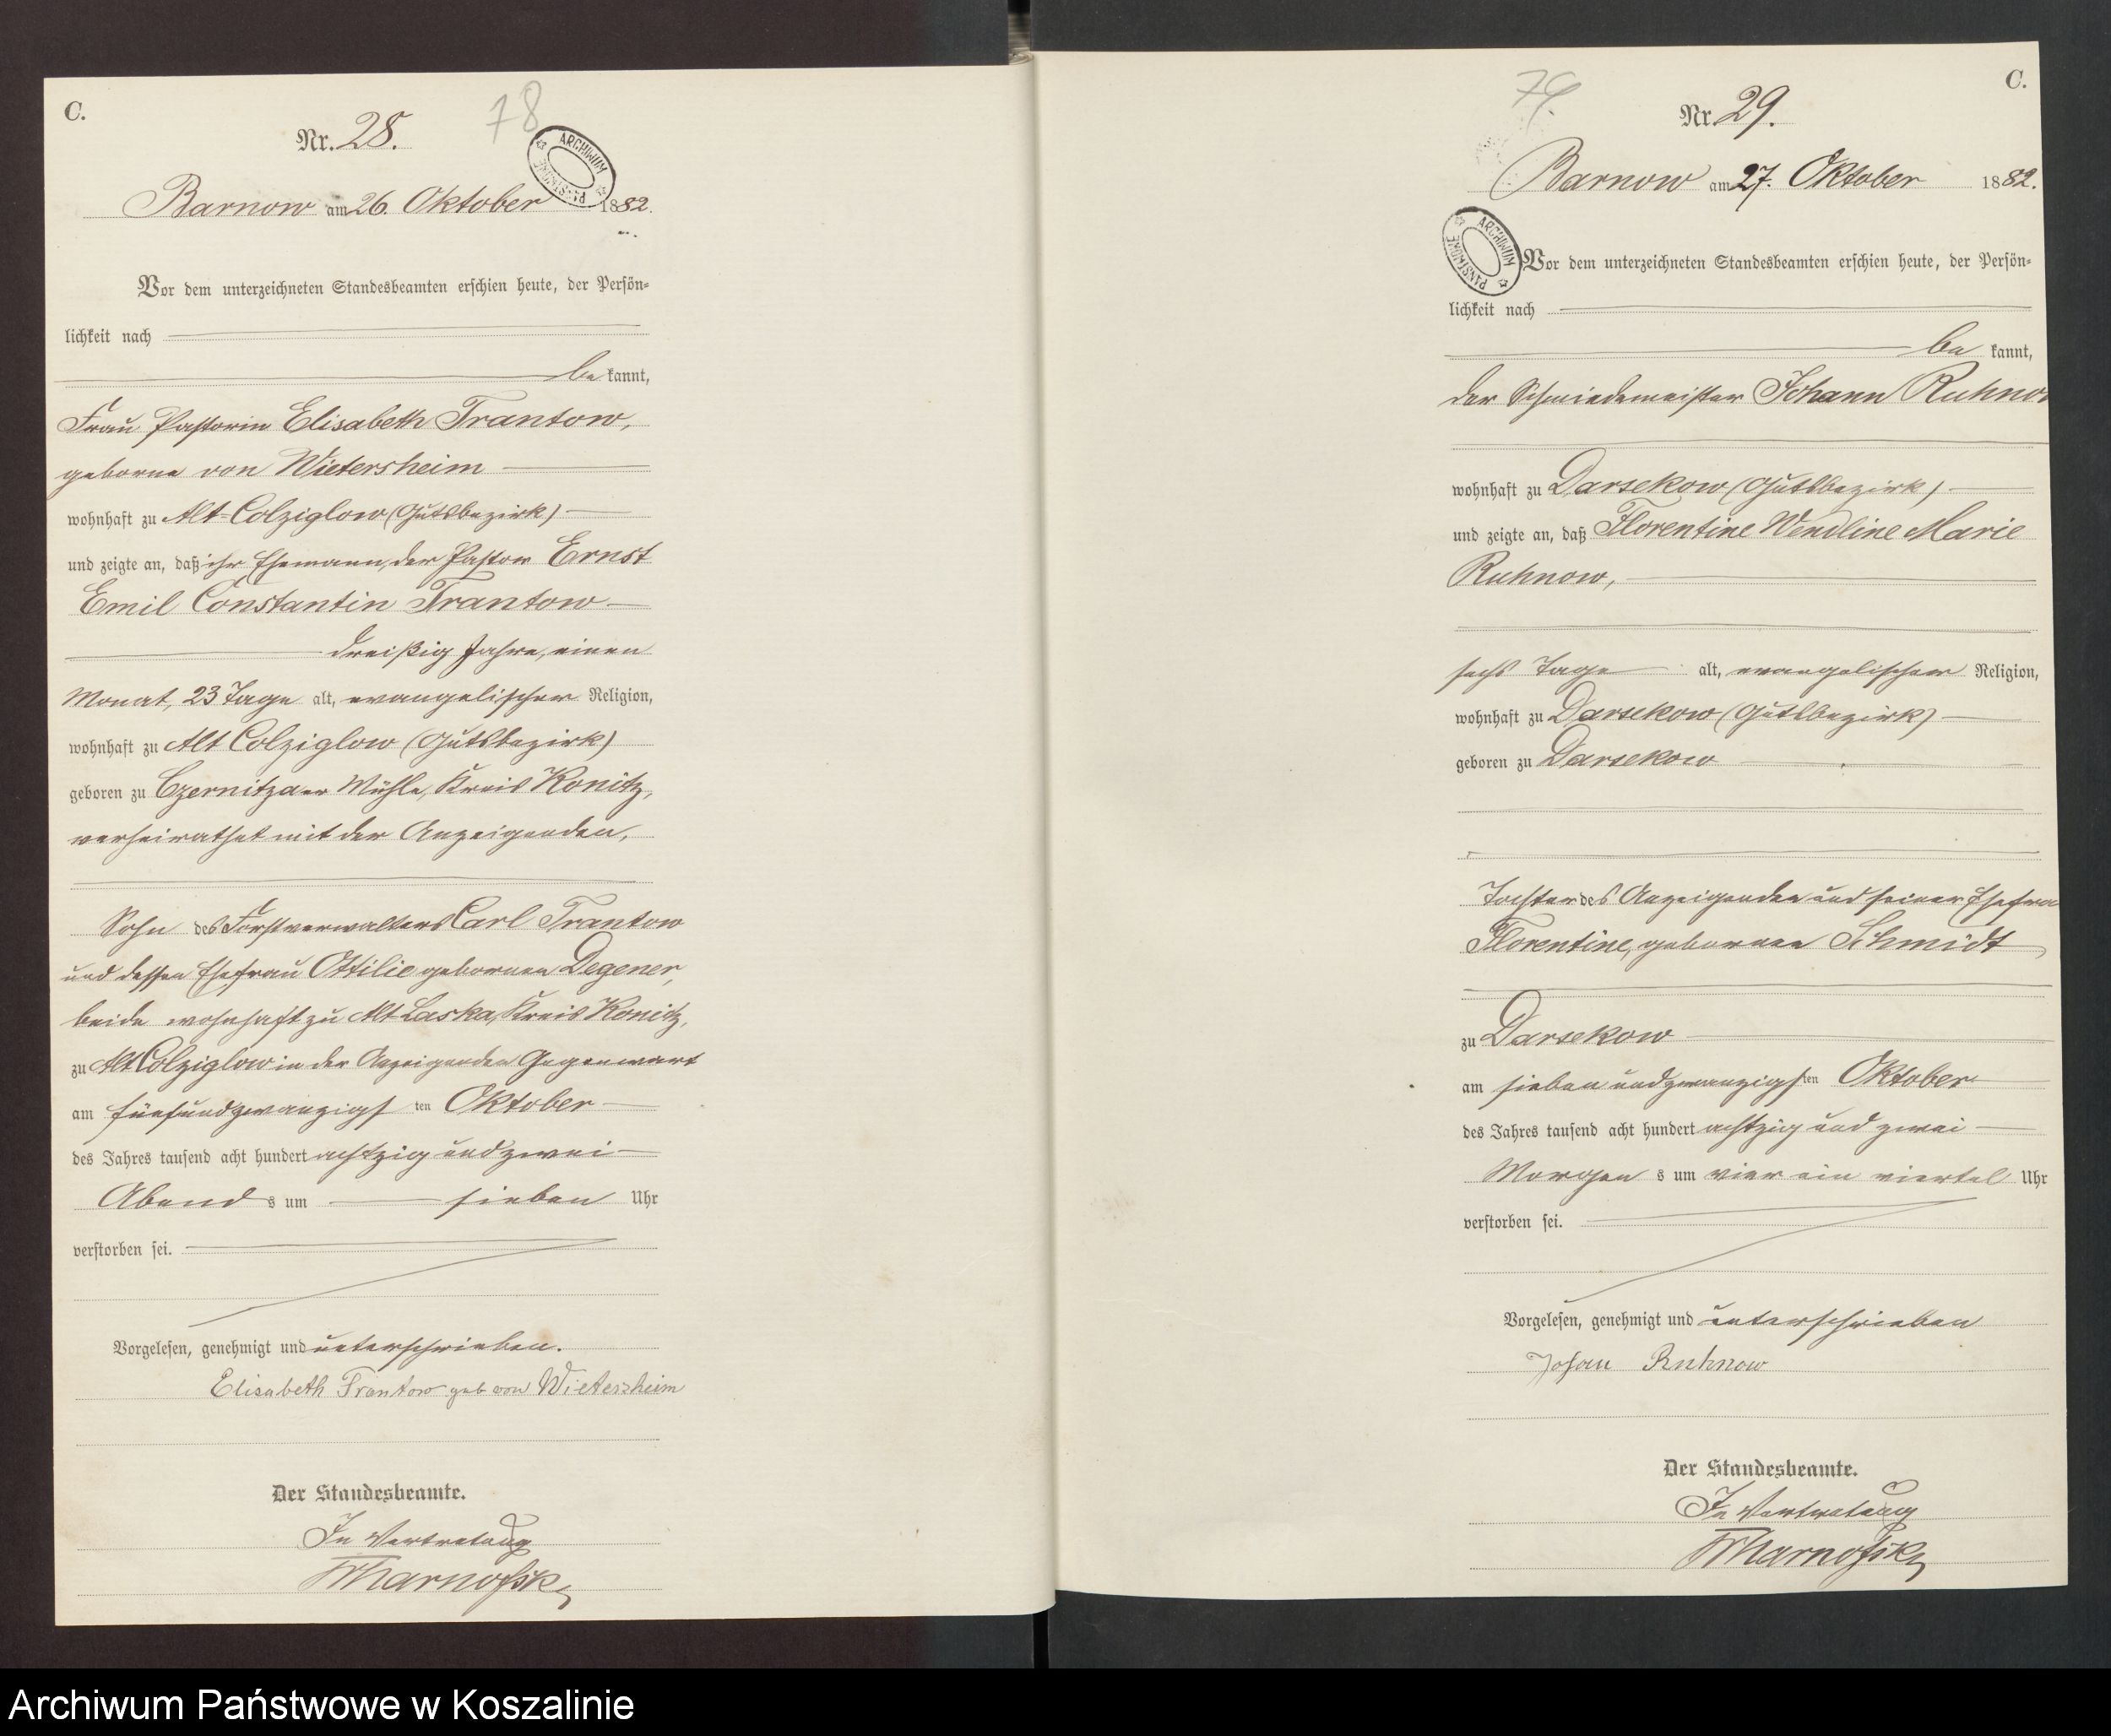 C.
78
Nr. 28.
ARCHIWUM PAŃSTWOWE
Barnow am 26. Oktober 1882.
Vor dem unterzeichneten Standesbeamten erschien heute, der Persön-
lichkeit nach
be kannt,
Frau Pastorin Elisabeth Trantow,
geborne von Wietersheim
wohnhaft zu Alt-Colziglow (Gutsbezirk)
und zeigte an, daß ihr Ehemann, der Pastor Ernst
Emil Constantin Trantow
dreißig Jahre, einen
Monat, 23 Tage alt, evangelischer Religion,
wohnhaft zu Alt Colziglow (Gutsbezirk)
geboren zu Czernitzaer Mühle, Kreis Konitz,
verheirathet mit der Anzeigenden,
Sohn des Forstverwalters Carl Trantow
und dessen Ehefrau Ottilie gebornen Degener,
beide wohnhaft zu Alt Laska, Kreis Konitz,
zu Alt Colziglow in der Anzeigenden Gegenwart
am fünfundzwanzigs ten Oktober
des Jahres tausend acht hundert achtzig und zwei
Abend s um sieben Uhr
verstorben sei.
Vorgelesen, genehmigt und unterschrieben.
Elisabeth Trantow geb von Wietersheim
Der Standesbeamte.
In Vertretung
C.
79.
Nr. 29.
Barnow am 27. Oktober 1882.
ARCHIWUM PAŃSTWOWE
Vor dem unterzeichneten Standesbeamten erschien heute, der Persön-
lichkeit nach
be kannt,
der Schmiedemeister Johann Ruhnow
wohnhaft zu Darsekow (Gutsbezirk)
und zeigte an, daß Florentine Wendline Marie
Ruhnow,
sechs Tage alt, evangelischer Religion,
wohnhaft zu Darsekow (Gutsbezirk)
geboren zu Darsekow
Tochter des Anzeigenden und seiner Ehefrau
Florentine, gebornen Schmidt
zu Darsekow
am siebenundzwanzigs ten Oktober
des Jahres tausend acht hundert achtzig und zwei
Morgen s um vier ein viertel Uhr
verstorben sei.
Vorgelesen, genehmigt und unterschrieben
Johan Ruhnow
Der Standesbeamte.
In Vertretung
Archiwum Państwowe w Koszalinie